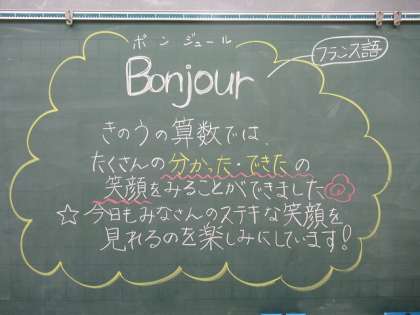 ボン ジュール
Bonjour
フランス語
きのうの算数では、
たくさんの分かった・できたの
笑顔をみることができました
☆今日もみなさんのステキな笑顔を
見れるのを楽しみにしています!